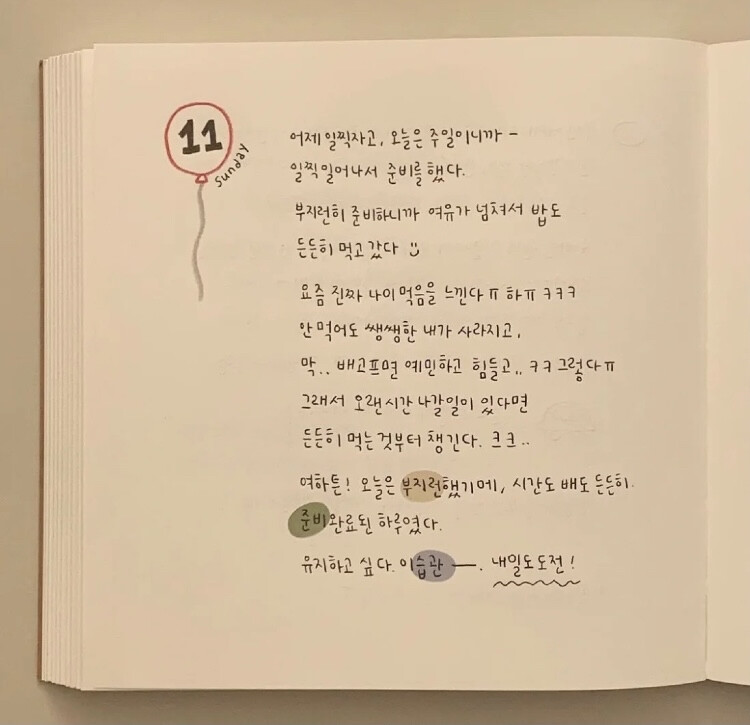 11
sunday
어제 일찍자고, 오늘은 주일이니까 -
일찍 일어나서 준비를 했다.
부지런히 준비하니까 여유가 넘쳐서 밥도
든든히 먹고 갔다
요즘 진짜 나이 먹음을 느낀다ㅠ 하ㅠ ㅋㅋㅋ
안 먹어도 쌩쌩한 내가 사라지고,
막.. 배고프면 예민하고 힘들고.. ㅋㅋ 그렇다ㅠ
그래서 오랜시간 나갈일이 있다면
든든히 먹는것부터 챙긴다. 크크..
여하튼! 오늘은 부지런했기에, 시간도 배도 든든히.
준비완료된 하루였다.
유지하고 싶다. 이습관 —. 내일도 도전!